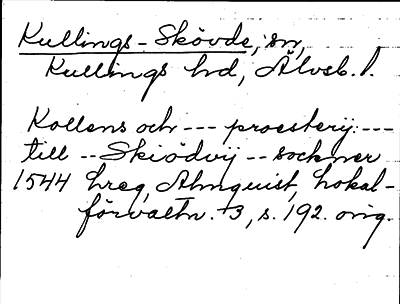 Kullings-Skövde, sn,
Kullings hd, Älvsb. l.
Kollens och --- proesterij: ---
till -- Skiödvij -- sockner
1544 hreg, Almquist, Lokal-
förvaltn. 3, s. 192. orig.